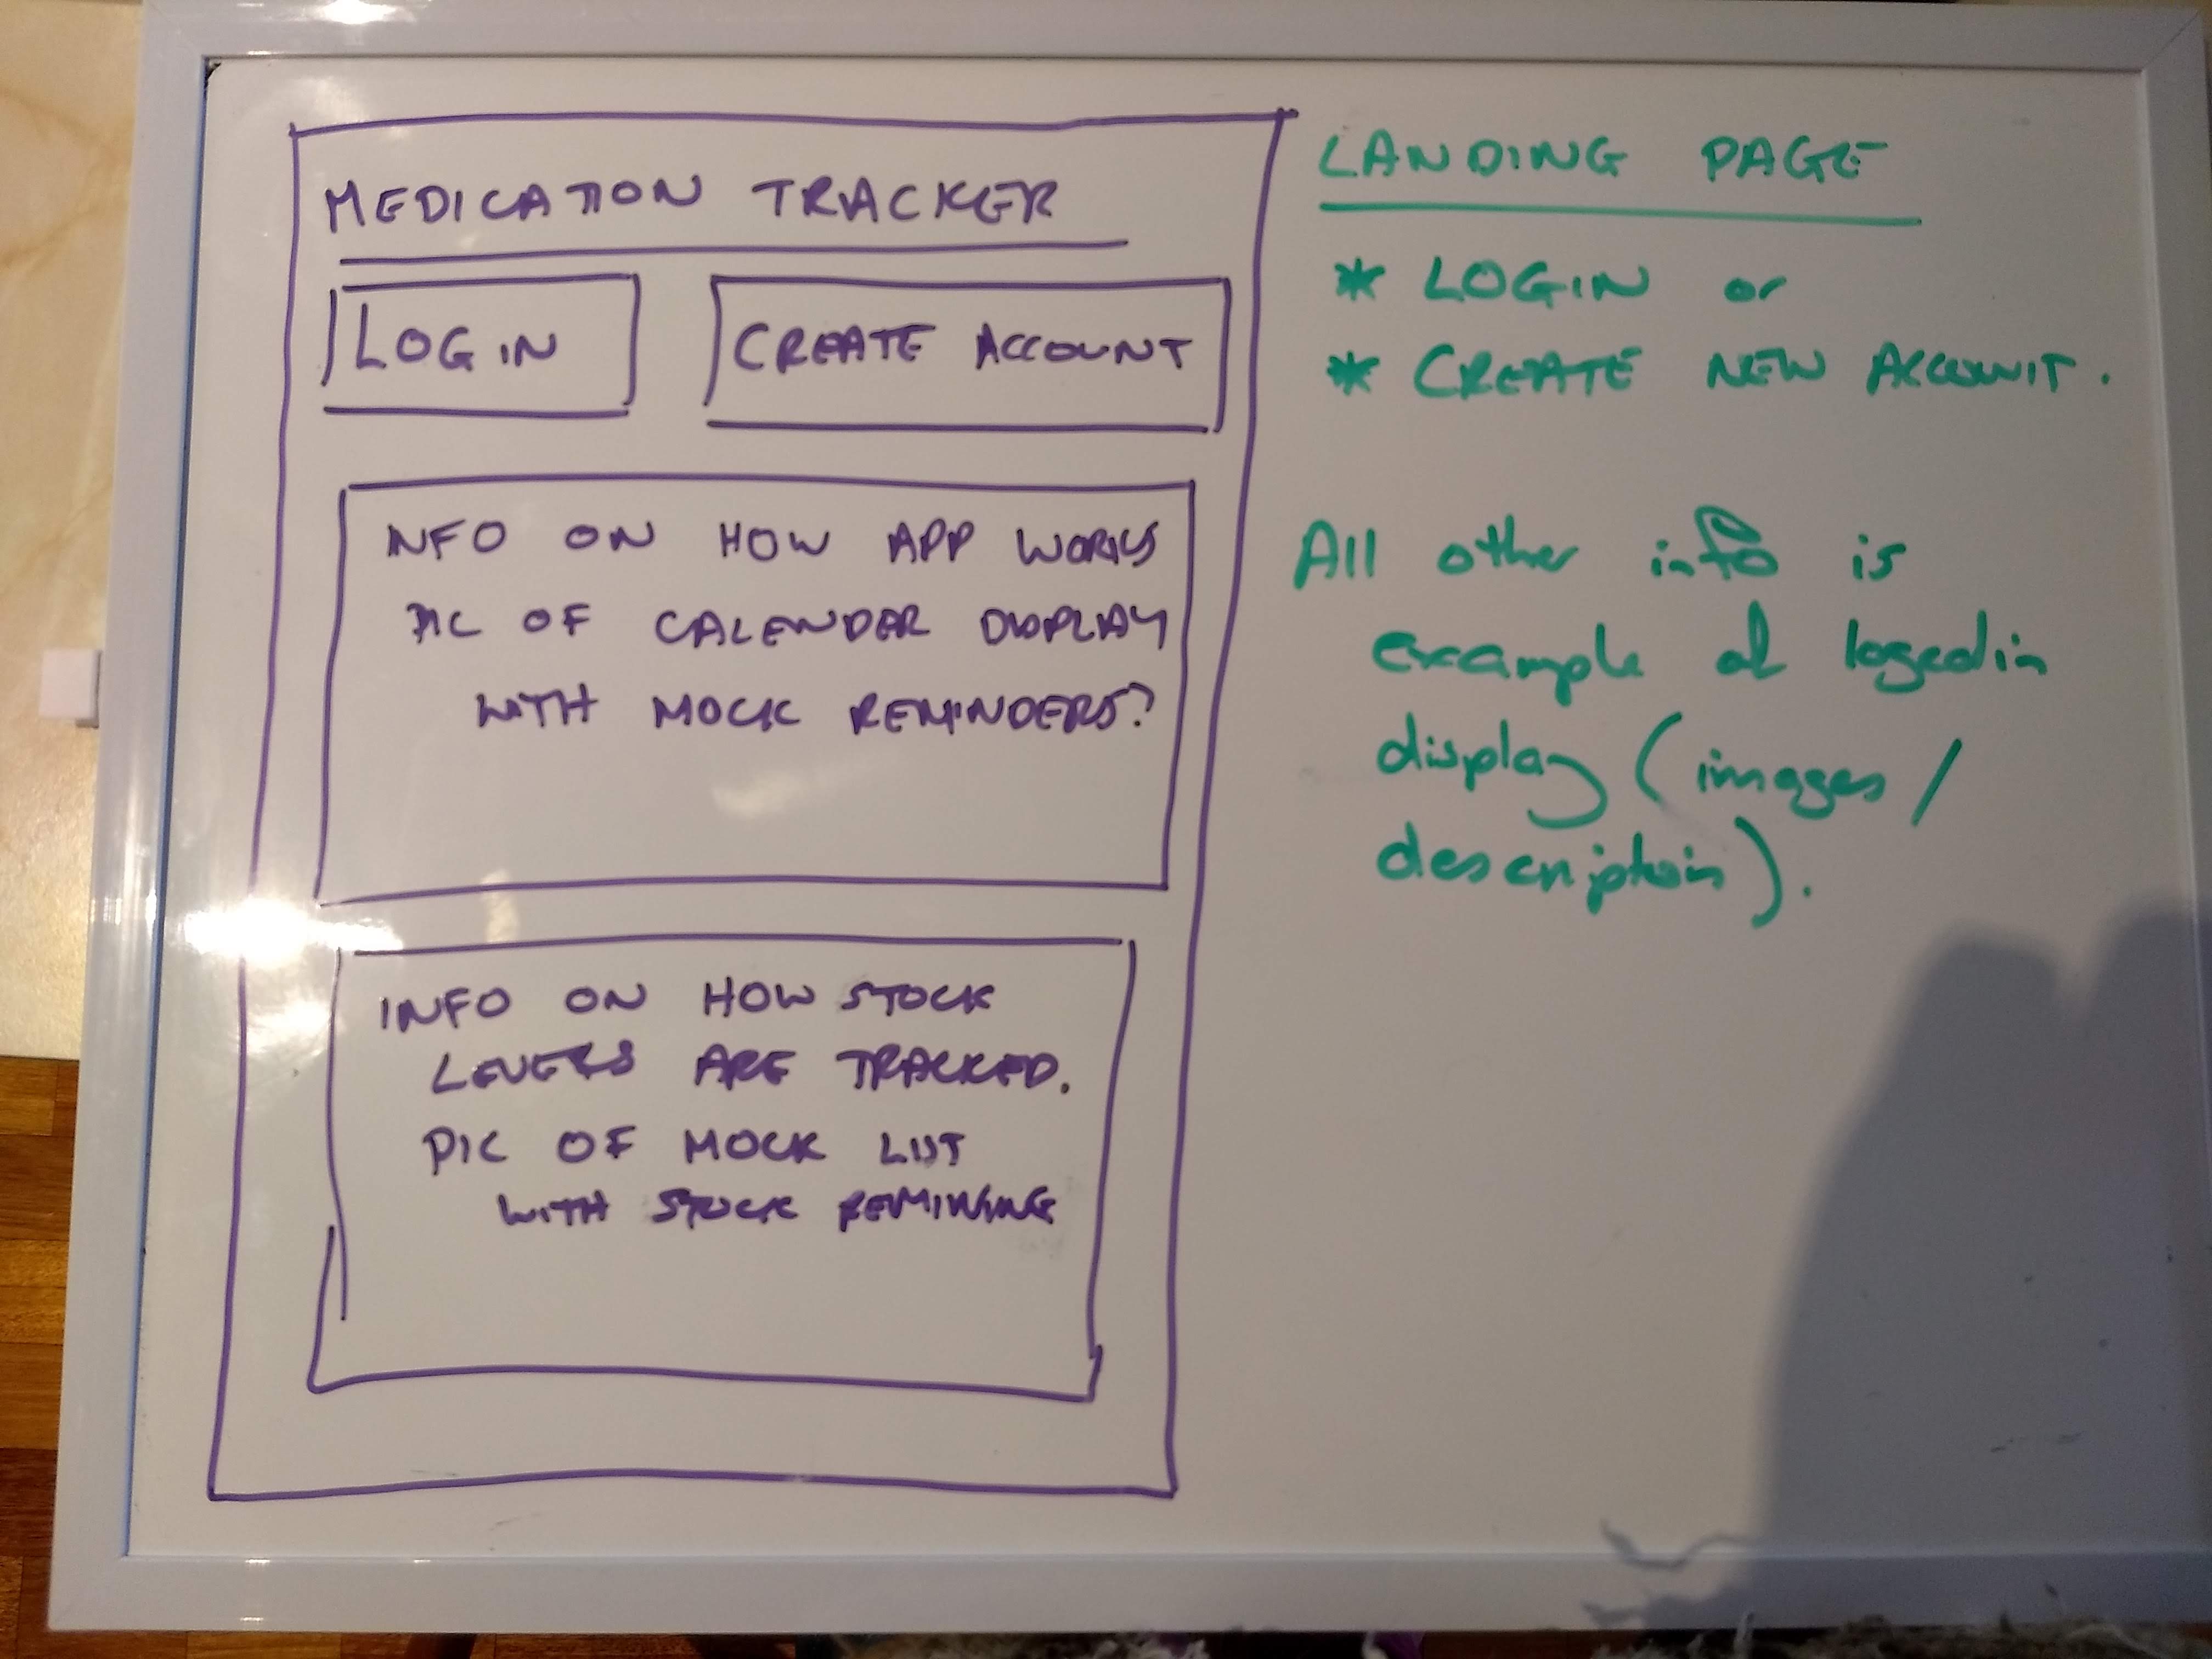 MEDICATION TRACKER
LOGIN
CREATE ACCOUNT
INFO ON HOW APP WORKS
PIC OF CALENDER DISPLAY
WITH MOCK REMINDERS?
INFO ON HOW STOCK
LEVELS ARE TRACKED.
PIC OF MOCK LIST
WITH STOCK REMINING
LANDING PAGE
* LOGIN or
* CREATE NEW ACCOUNT.
All other info is
example of logedin
display (images /
description).